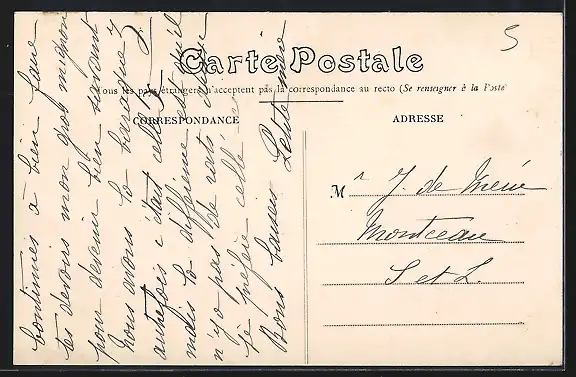 5
Carte Postale
Tous les pays étrangers n'acceptent pas la correspondance au recto (Se renseigner à la Poste
CORRESPONDANCE
ADRESSE
Continues à bien faire
tes devoirs mon gros mignon
pour devenir bien savant
nous avons la baraque
autrefois c'était celle
mais la différence est qu'il
n'y a pas de
je préfère celle
Bons baisers
M r J. de
Montceau
S et L.